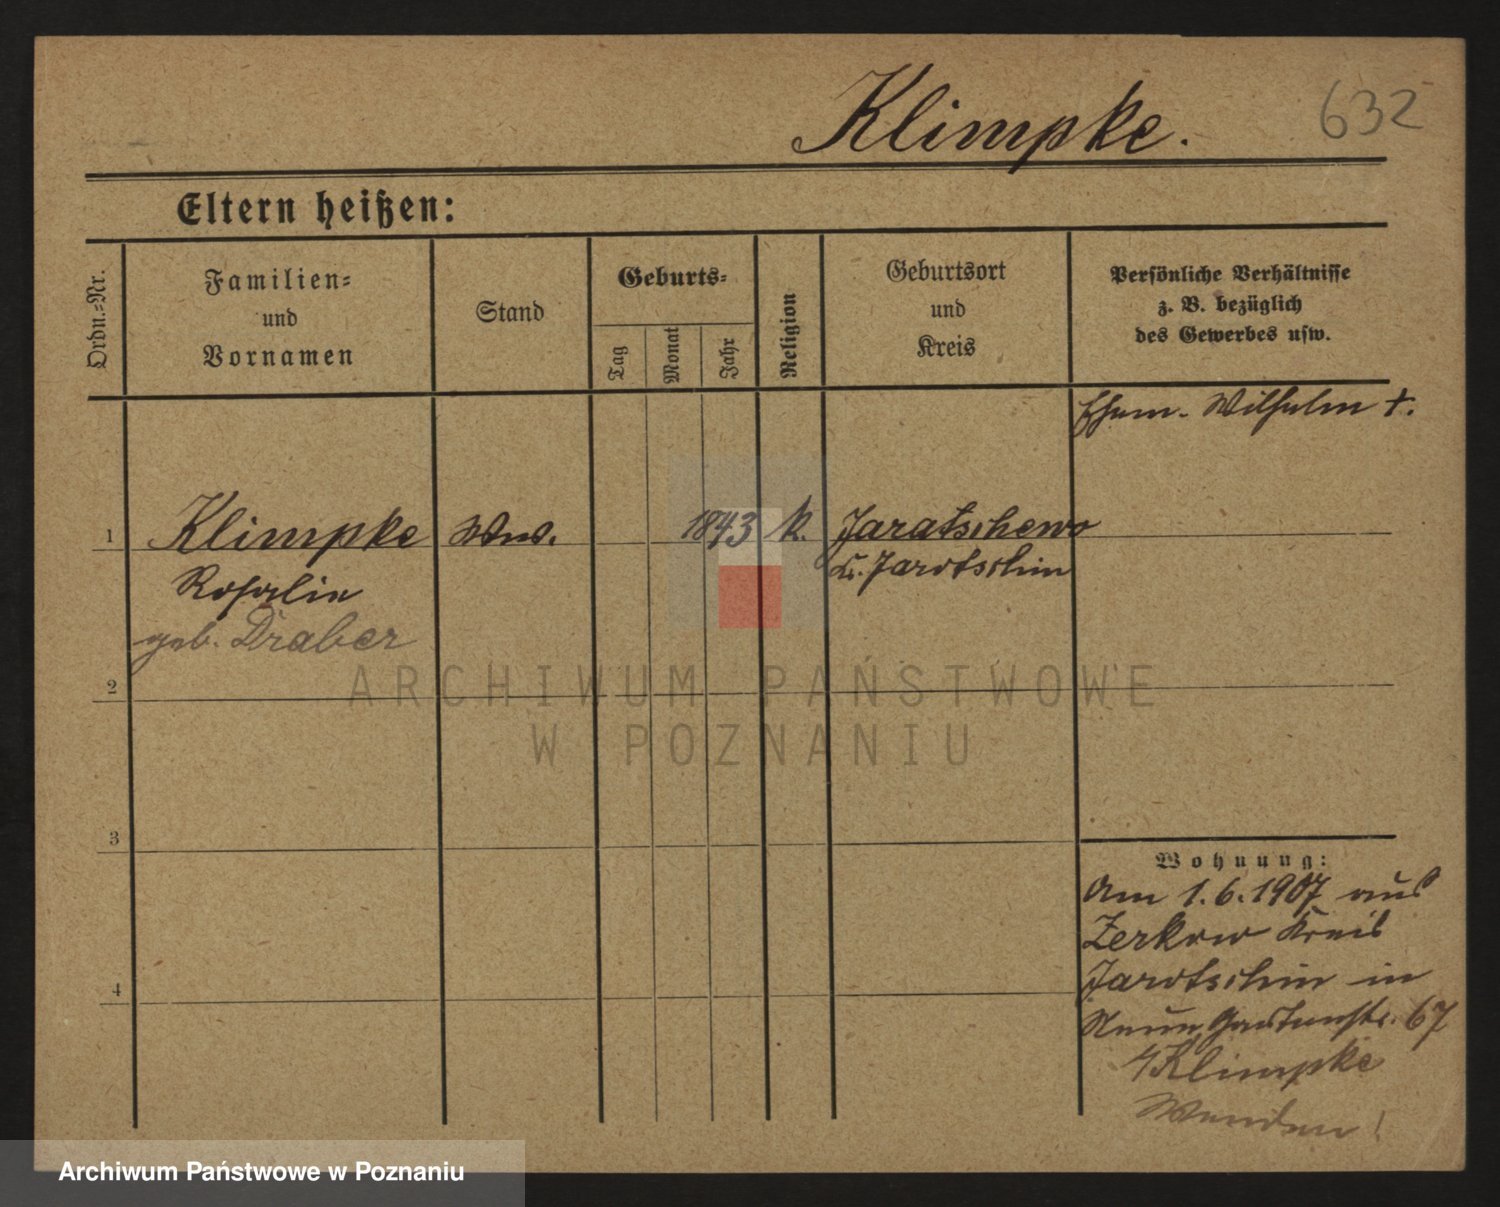 Klimpke. 632
Eltern heißen:
Ordn.=Nr.
Familien=
und
Vornamen
Stand
Geburts=
Tag
Monat
Jahr
Religion
Geburtsort
und
Kreis
Persönliche Verhältnisse
z. B. bezüglich
des Gewerbes usw.
Ehem. Wilhelm †.
1 Klimpke Wwe. 1843 k. Jaratschewo
Rosalie Kr. Jarotschin
geb. Draber
2
3
4
Wohnung:
Am 1.6.1907 aus
Zerkow Kreis
Jarotschin in
Neue Gartenstr. 67
Klimpke
Wenden!
ARCHIWUM PAŃSTWOWE
W POZNANIU
Archiwum Państwowe w Poznaniu